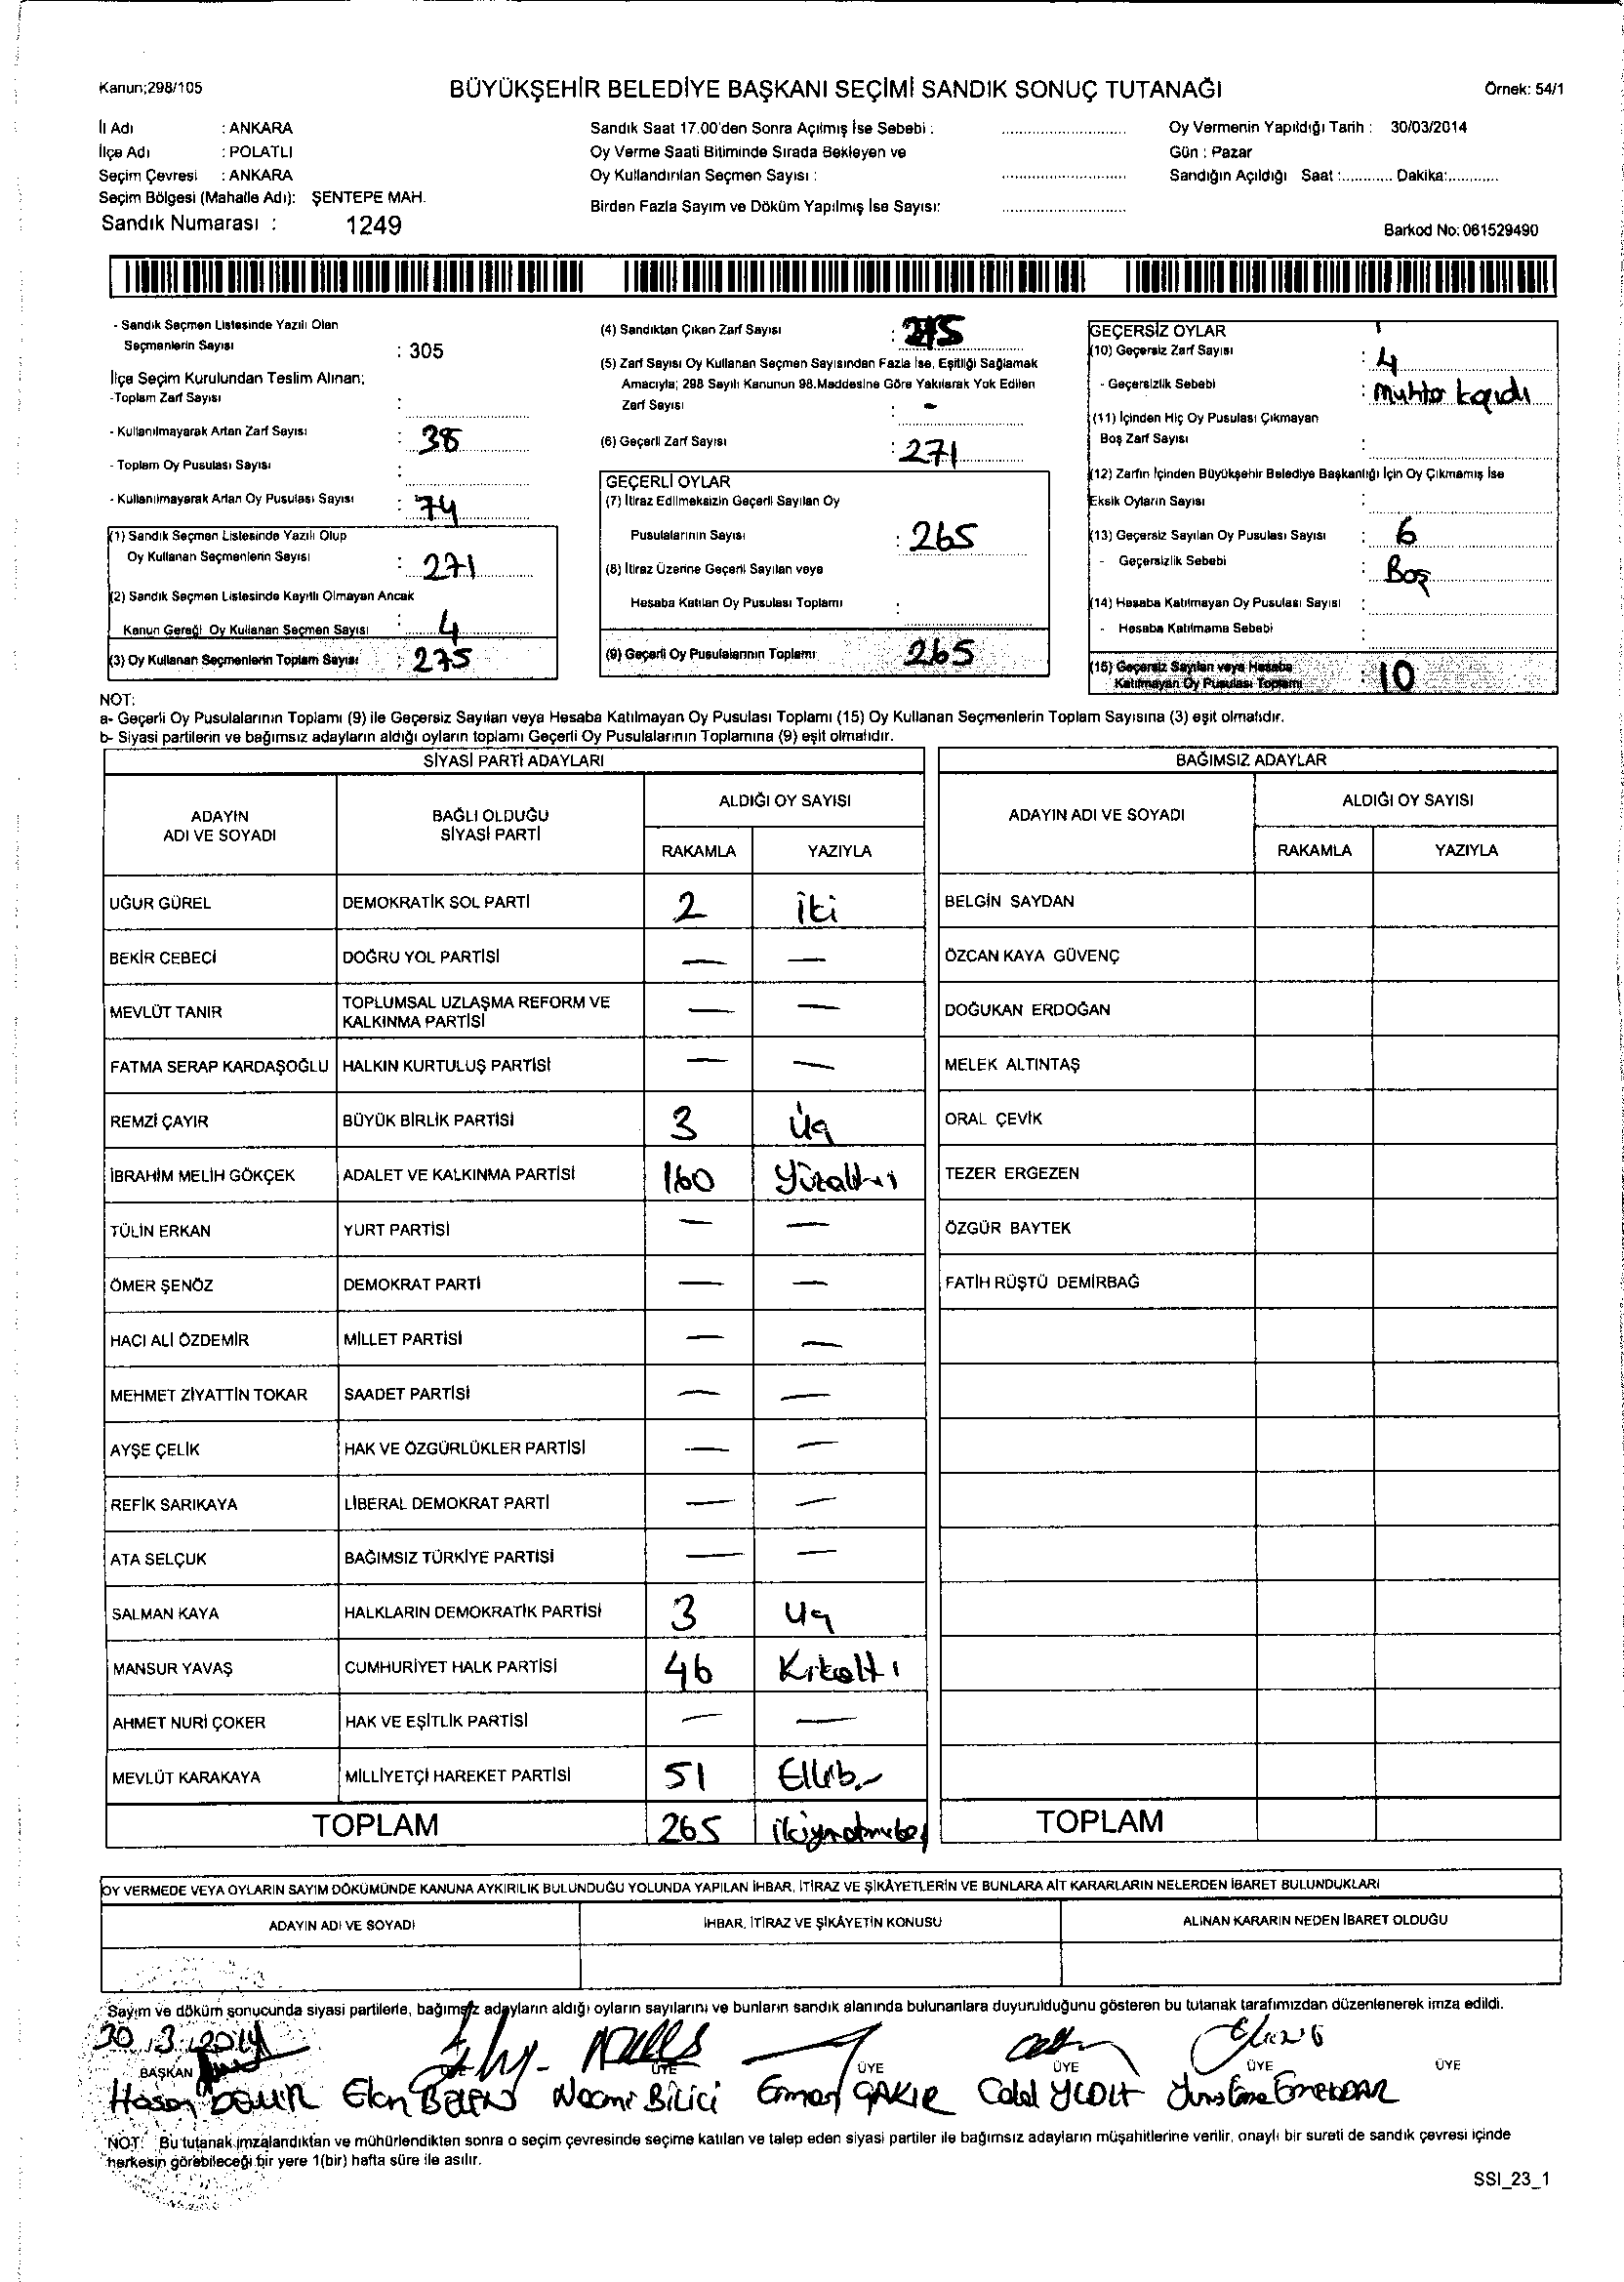 Kanun;298/105
BÜYÜKŞEHİR BELEDİYE BAŞKANI SEÇİMİ SANDIK SONUÇ TUTANAĞI
Örnek: 54/1
İl Adı : ANKARA
İlçe Adı : POLATLI
Seçim Çevresi : ANKARA
Seçim Bölgesi (Mahalle Adı): ŞENTEPE MAH.
Sandık Numarası : 1249
Sandık Saat 17.00'den Sonra Açılmış İse Sebebi : ..............................
Oy Verme Saati Bitiminde Sırada Bekleyen ve
Oy Kullandırılan Seçmen Sayısı : ..............................
Birden Fazla Sayım ve Döküm Yapılmış İse Sayısı: ..............................
Oy Vermenin Yapıldığı Tarih : 30/03/2014
Gün : Pazar
Sandığın Açıldığı Saat :............ Dakika:............
Barkod No: 061529490
- Sandık Seçmen Listesinde Yazılı Olan
Seçmenlerin Sayısı : 305
İlçe Seçim Kurulundan Teslim Alınan;
-Toplam Zarf Sayısı :
- Kullanılmayarak Artan Zarf Sayısı : 38
- Toplam Oy Pusulası Sayısı :
- Kullanılmayarak Artan Oy Pusulası Sayısı : 74
(1) Sandık Seçmen Listesinde Yazılı Olup
Oy Kullanan Seçmenlerin Sayısı : 271
(2) Sandık Seçmen Listesinde Kayıtlı Olmayan Ancak
Kanun Gereği Oy Kullanan Seçmen Sayısı : 4
(3) Oy Kullanan Seçmenlerin Toplam Sayısı : 275
(4) Sandıktan Çıkan Zarf Sayısı : 275
(5) Zarf Sayısı Oy Kullanan Seçmen Sayısından Fazla İse, Eşitliği Sağlamak
Amacıyla; 298 Sayılı Kanunun 98.Maddesine Göre Yakılarak Yok Edilen
Zarf Sayısı : -
(6) Geçerli Zarf Sayısı : 271
GEÇERLİ OYLAR
(7) İtiraz Edilmeksizin Geçerli Sayılan Oy
Pusulalarının Sayısı : 265
(8) İtiraz Üzerine Geçerli Sayılan veya
Hesaba Katılan Oy Pusulası Toplamı :
(9) Geçerli Oy Pusulalarının Toplamı : 265
GEÇERSİZ OYLAR
(10) Geçersiz Zarf Sayısı : 4
- Geçersizlik Sebebi :
(11) İçinden Hiç Oy Pusulası Çıkmayan
Boş Zarf Sayısı :
(12) Zarfın İçinden Büyükşehir Belediye Başkanlığı İçin Oy Çıkmamış İse
Eksik Oyların Sayısı :
(13) Geçersiz Sayılan Oy Pusulası Sayısı : 6
- Geçersizlik Sebebi : Boş
(14) Hesaba Katılmayan Oy Pusulası Sayısı :
- Hesaba Katılmama Sebebi :
(15) Geçersiz Sayılan veya Hesaba
Katılmayan Oy Pusulası Toplamı : 10
NOT:
a- Geçerli Oy Pusulalarının Toplamı (9) ile Geçersiz Sayılan veya Hesaba Katılmayan Oy Pusulası Toplamı (15) Oy Kullanan Seçmenlerin Toplam Sayısına (3) eşit olmalıdır.
b- Siyasi partilerin ve bağımsız adayların aldığı oyların toplamı Geçerli Oy Pusulalarının Toplamına (9) eşit olmalıdır.
SİYASİ PARTİ ADAYLARI
ADAYIN ADI VE SOYADI BAĞLI OLDUĞU SİYASİ PARTİ ALDIĞI OY SAYISI
RAKAMLA YAZIYLA
UĞUR GÜREL DEMOKRATİK SOL PARTİ 2 İki
BEKİR CEBECİ DOĞRU YOL PARTİSİ — —
MEVLÜT TANIR TOPLUMSAL UZLAŞMA REFORM VE KALKINMA PARTİSİ — —
FATMA SERAP KARDAŞOĞLU HALKIN KURTULUŞ PARTİSİ — —
REMZİ ÇAYIR BÜYÜK BİRLİK PARTİSİ 3 Üç
İBRAHİM MELİH GÖKÇEK ADALET VE KALKINMA PARTİSİ 160
TÜLİN ERKAN YURT PARTİSİ — —
ÖMER ŞENÖZ DEMOKRAT PARTİ — —
HACI ALİ ÖZDEMİR MİLLET PARTİSİ — —
MEHMET ZİYATTİN TOKAR SAADET PARTİSİ — —
AYŞE ÇELİK HAK VE ÖZGÜRLÜKLER PARTİSİ — —
REFİK SARIKAYA LİBERAL DEMOKRAT PARTİ — —
ATA SELÇUK BAĞIMSIZ TÜRKİYE PARTİSİ — —
SALMAN KAYA HALKLARIN DEMOKRATİK PARTİSİ 3 Uç
MANSUR YAVAŞ CUMHURİYET HALK PARTİSİ 46 Kırkaltı
AHMET NURİ ÇOKER HAK VE EŞİTLİK PARTİSİ — —
MEVLÜT KARAKAYA MİLLİYETÇİ HAREKET PARTİSİ 51 Ellibir
TOPLAM 265
BAĞIMSIZ ADAYLAR
ADAYIN ADI VE SOYADI ALDIĞI OY SAYISI
RAKAMLA YAZIYLA
BELGİN SAYDAN
ÖZCAN KAYA GÜVENÇ
DOĞUKAN ERDOĞAN
MELEK ALTINTAŞ
ORAL ÇEVİK
TEZER ERGEZEN
ÖZGÜR BAYTEK
FATİH RÜŞTÜ DEMİRBAĞ
TOPLAM
OY VERMEDE VEYA OYLARIN SAYIM DÖKÜMÜNDE KANUNA AYKIRILIK BULUNDUĞU YOLUNDA YAPILAN İHBAR, İTİRAZ VE ŞİKÂYETLERİN VE BUNLARA AİT KARARLARIN NELERDEN İBARET BULUNDUKLARI
ADAYIN ADI VE SOYADI İHBAR, İTİRAZ VE ŞİKÂYETİN KONUSU ALINAN KARARIN NEDEN İBARET OLDUĞU
Sayım ve döküm sonucunda siyasi partilerle, bağımsız adayların aldığı oyların sayılarını ve bunların sandık alanında bulunanlara duyurulduğunu gösteren bu tutanak tarafımızdan düzenlenerek imza edildi.
30.3.2014
BAŞKAN ÜYE ÜYE ÜYE ÜYE ÜYE
Hasan DEMİR Necmi Bilici ÇAKIR
NOT: Bu tutanak imzalandıktan ve mühürlendikten sonra o seçim çevresinde seçime katılan ve talep eden siyasi partiler ile bağımsız adayların müşahitlerine verilir, onaylı bir sureti de sandık çevresi içinde
herkesin görebileceği bir yere 1(bir) hafta süre ile asılır.
SSI_23_1